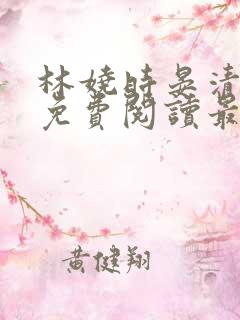 林嬈時晏清
免費閱讀最
黃健翔